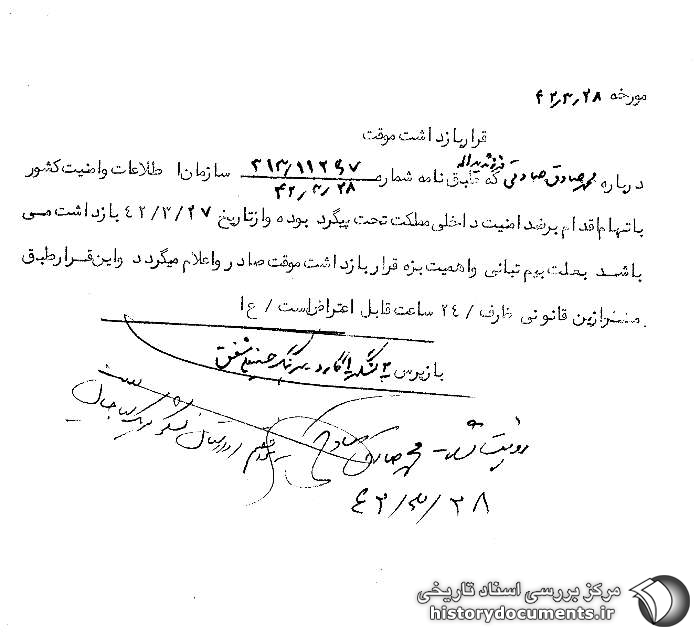 مورخه ۴۲٫۳٫۲۸
قرار بازداشت موقت
درباره محمد صادق صادقی فرزند یداله که طبق نامه شماره ۳۱۳/۱۱۲۶۷ سازمان اطلاعات وامنیت کشور
۴۲/۳/۲۸
باتهام اقدام برضد امنیت داخلی مملکت تحت پیگرد بوده وازتاریخ ۴۲/۳/۲۷ بازداشت می
باشد بعلت بیم تبانی واهمیت بزه قرار بازداشت موقت صادر واعلام میگردد واین قرار طبق
موازین قانونی ظرف / ۲۴ ساعت قابل اعتراض است / ع ا
بازپرس لشگر ۱ گارد سرهنگ
رؤیت شد - محمد صادق
۴۲/۳/۲۸
مرکز بررسی اسناد تاریخی
historydocuments.ir